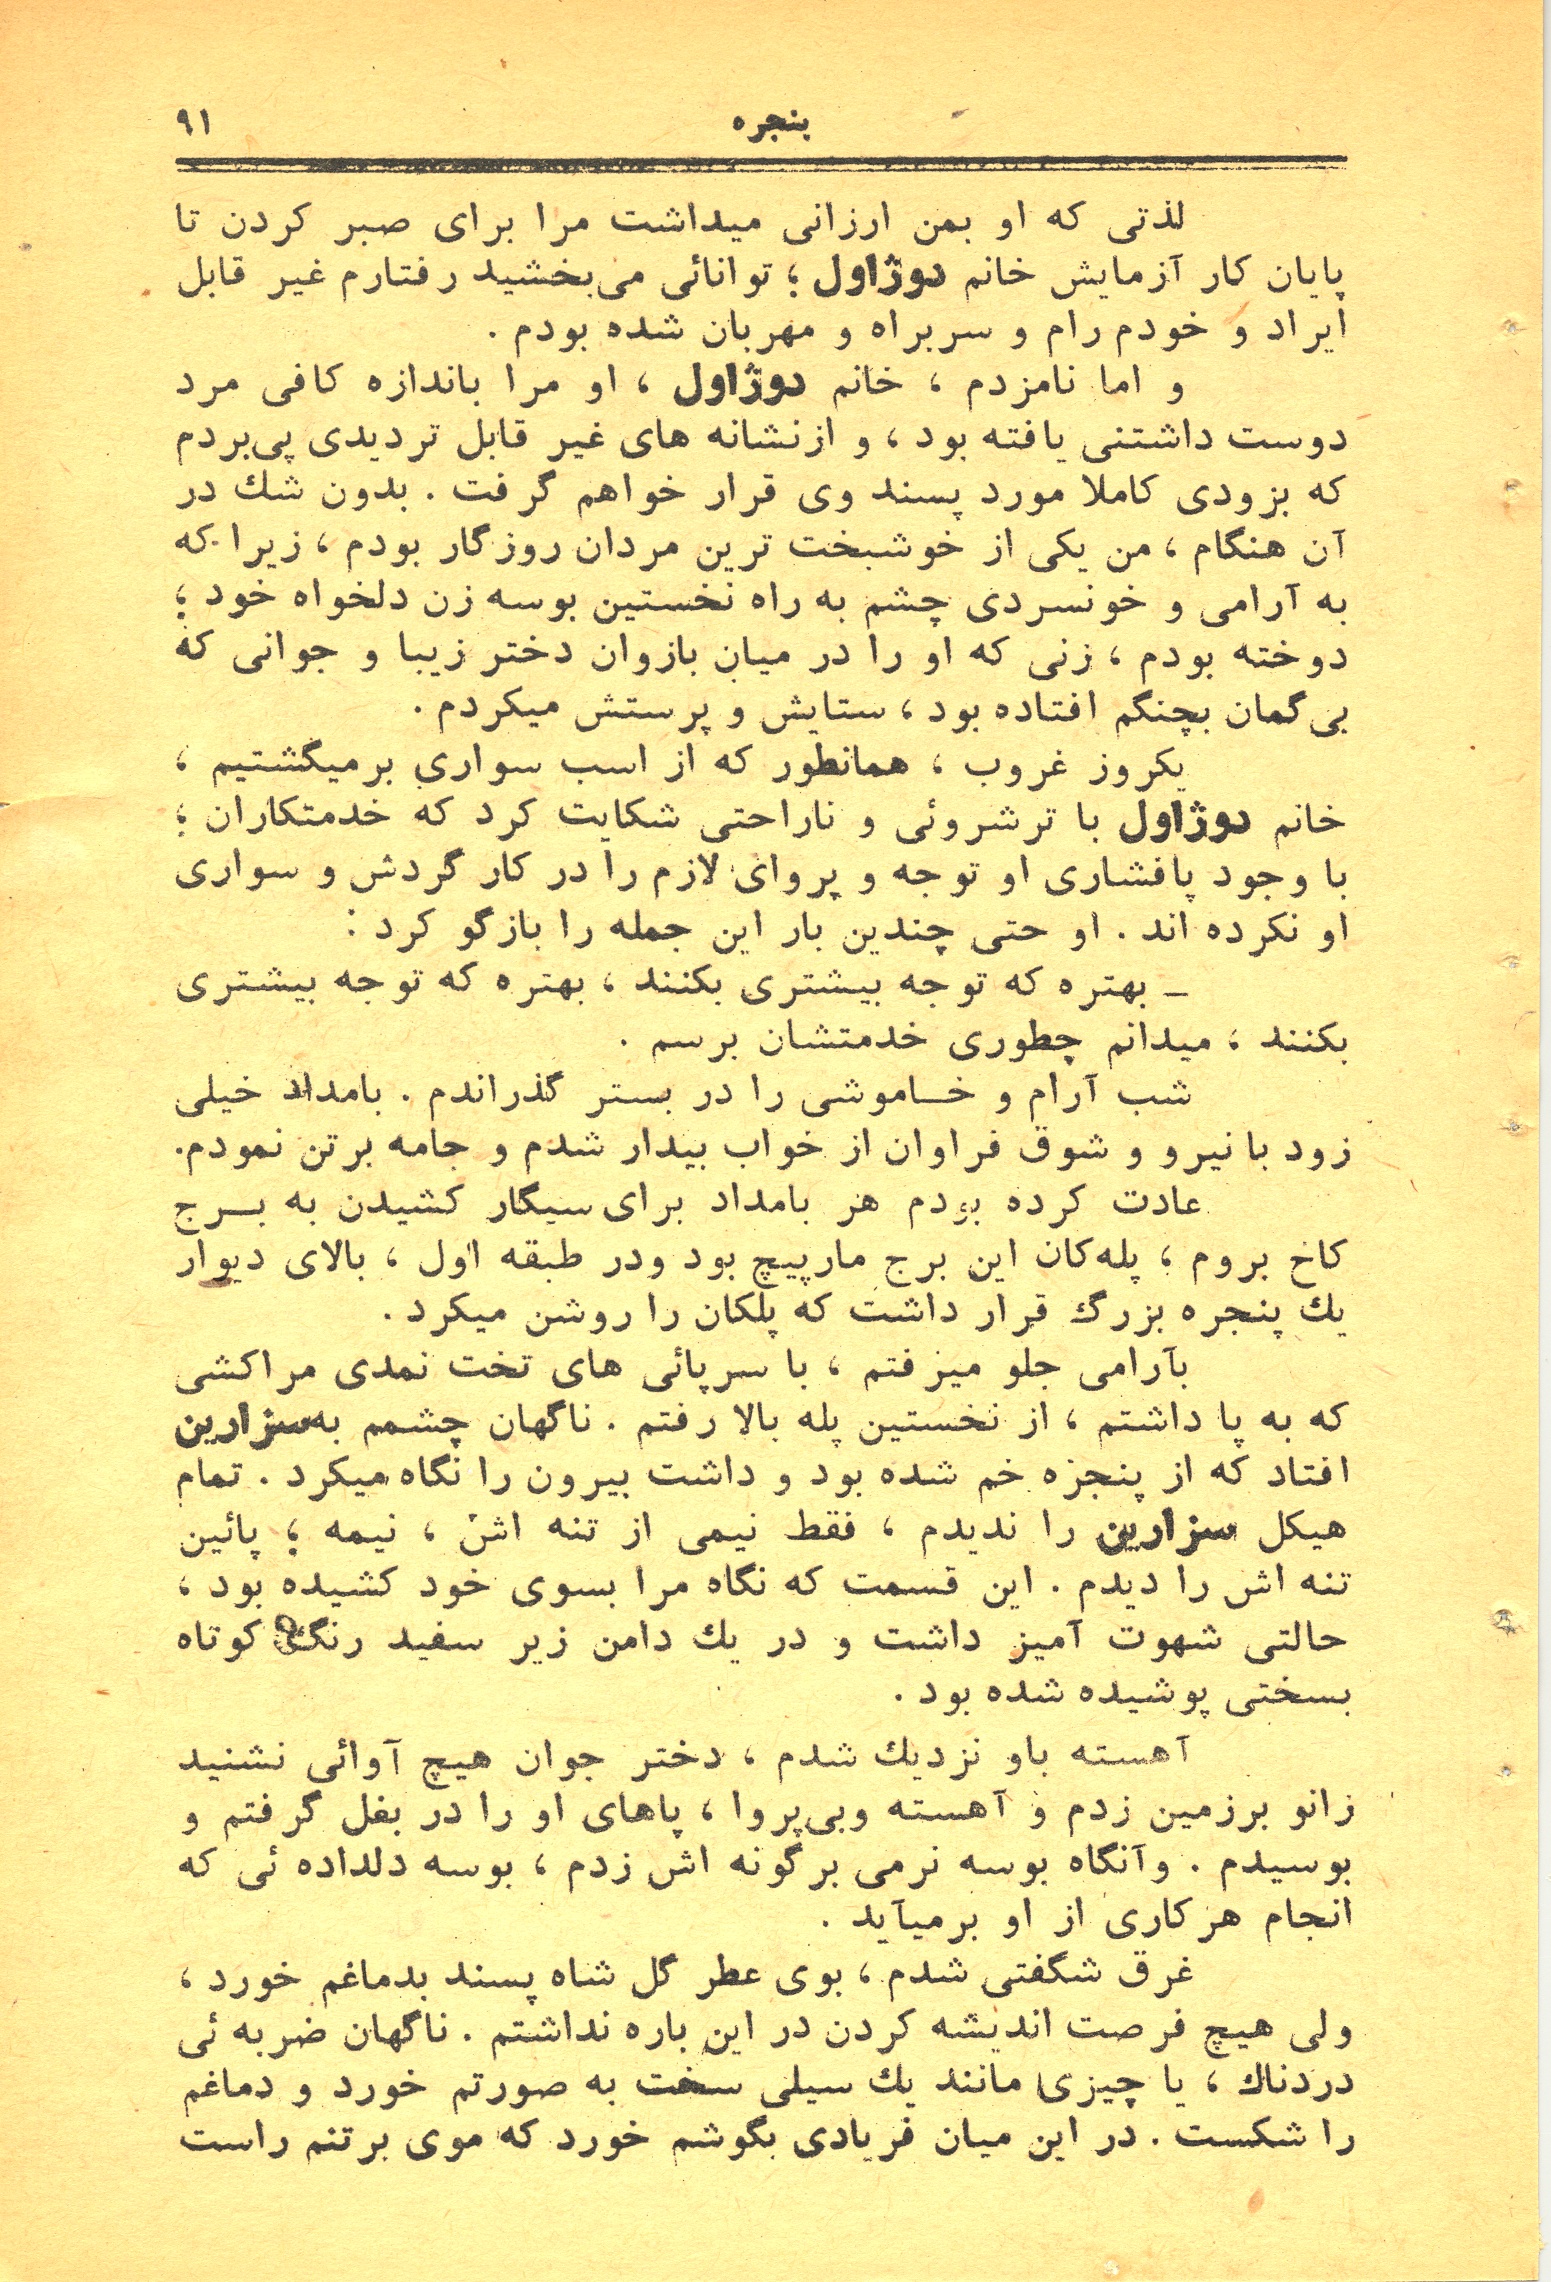 پنجره ۹۱
لذتی که او بمن ارزانی میداشت مرا برای صبر کردن تا
پایان کار آزمایش خانم دوژاول ؛ توانائی می‌بخشید رفتارم غیر قابل
ایراد و خودم رام و سربراه و مهربان شده بودم .
و اما نامزدم ، خانم دوژاول ، او مرا باندازه کافی مرد
دوست داشتنی یافته بود ، و از نشانه های غیر قابل تردیدی پی‌بردم
که بزودی کاملا مورد پسند وی قرار خواهم گرفت . بدون شك در
آن هنگام ، من یکی از خوشبخت ترین مردان روزگار بودم ، زیرا که
به آرامی و خونسردی چشم به راه نخستین بوسه زن دلخواه خود ؛
دوخته بودم ، زنی که او را در میان بازوان دختر زیبا و جوانی که
بی گمان بچنگم افتاده بود ، ستایش و پرستش میکردم .
یکروز غروب ، همانطور که از اسب سواری برمیگشتیم ،
خانم دوژاول با ترشروئی و ناراحتی شکایت کرد که خدمتکاران ؛
با وجود پافشاری او توجه و پروای لازم را در کار گردش و سواری
او نکرده اند . او حتی چندین بار این جمله را بازگو کرد :
ـ بهتره که توجه بیشتری بکنند ، بهتره که توجه بیشتری
بکنند ، میدانم چطوری خدمتشان برسم .
شب آرام و خـاموشی را در بستر گذراندم . بامداد خیلی
زود با نیرو و شوق فراوان از خواب بیدار شدم و جامه برتن نمودم.
عادت کرده بودم هر بامداد برای سیگار کشیدن به بـرج
کاخ بروم ، پله‌کان این برج مارپیچ بود ودر طبقه اول ، بالای دیوار
یك پنجره بزرگ قرار داشت که پلکان را روشن میکرد .
بآرامی جلو میزفتم ، با سرپائی های تخت نمدی مراکشی
که به پا داشتم ، از نخستین پله بالا رفتم . ناگهان چشمم به سزارین
افتاد که از پنجزه خم شده بود و داشت بیرون را نگاه میکرد . تمام
هیکل سزارین را ندیدم ، فقط نیمی از تنه اش ، نیمه ؛ پائین
تنه اش را دیدم . این قسمت که نگاه مرا بسوی خود کشیده بود ،
حالتی شهوت آمیز داشت و در یك دامن زیر سفید رنگ کوتاه
بسختی پوشیده شده بود .
آهسته باو نزدیك شدم ، دختر جوان هیچ آوائی نشنید
زانو برزمین زدم و آهسته وبی‌پروا ، پاهای او را در بغل گرفتم و
بوسیدم . وآنگاه بوسه نرمی برگونه اش زدم ، بوسه دلداده ئی که
انجام هرکاری از او برمیآید .
غرق شگفتی شدم ، بوی عطر گل شاه پسند بدماغم خورد ،
ولی هیچ فرصت اندیشه کردن در این باره نداشتم . ناگهان ضربه ئی
دردناك ، یا چیزی مانند یك سیلی سخت به صورتم خورد و دماغم
را شکست . در این میان فریادی بگوشم خورد که موی برتنم راست